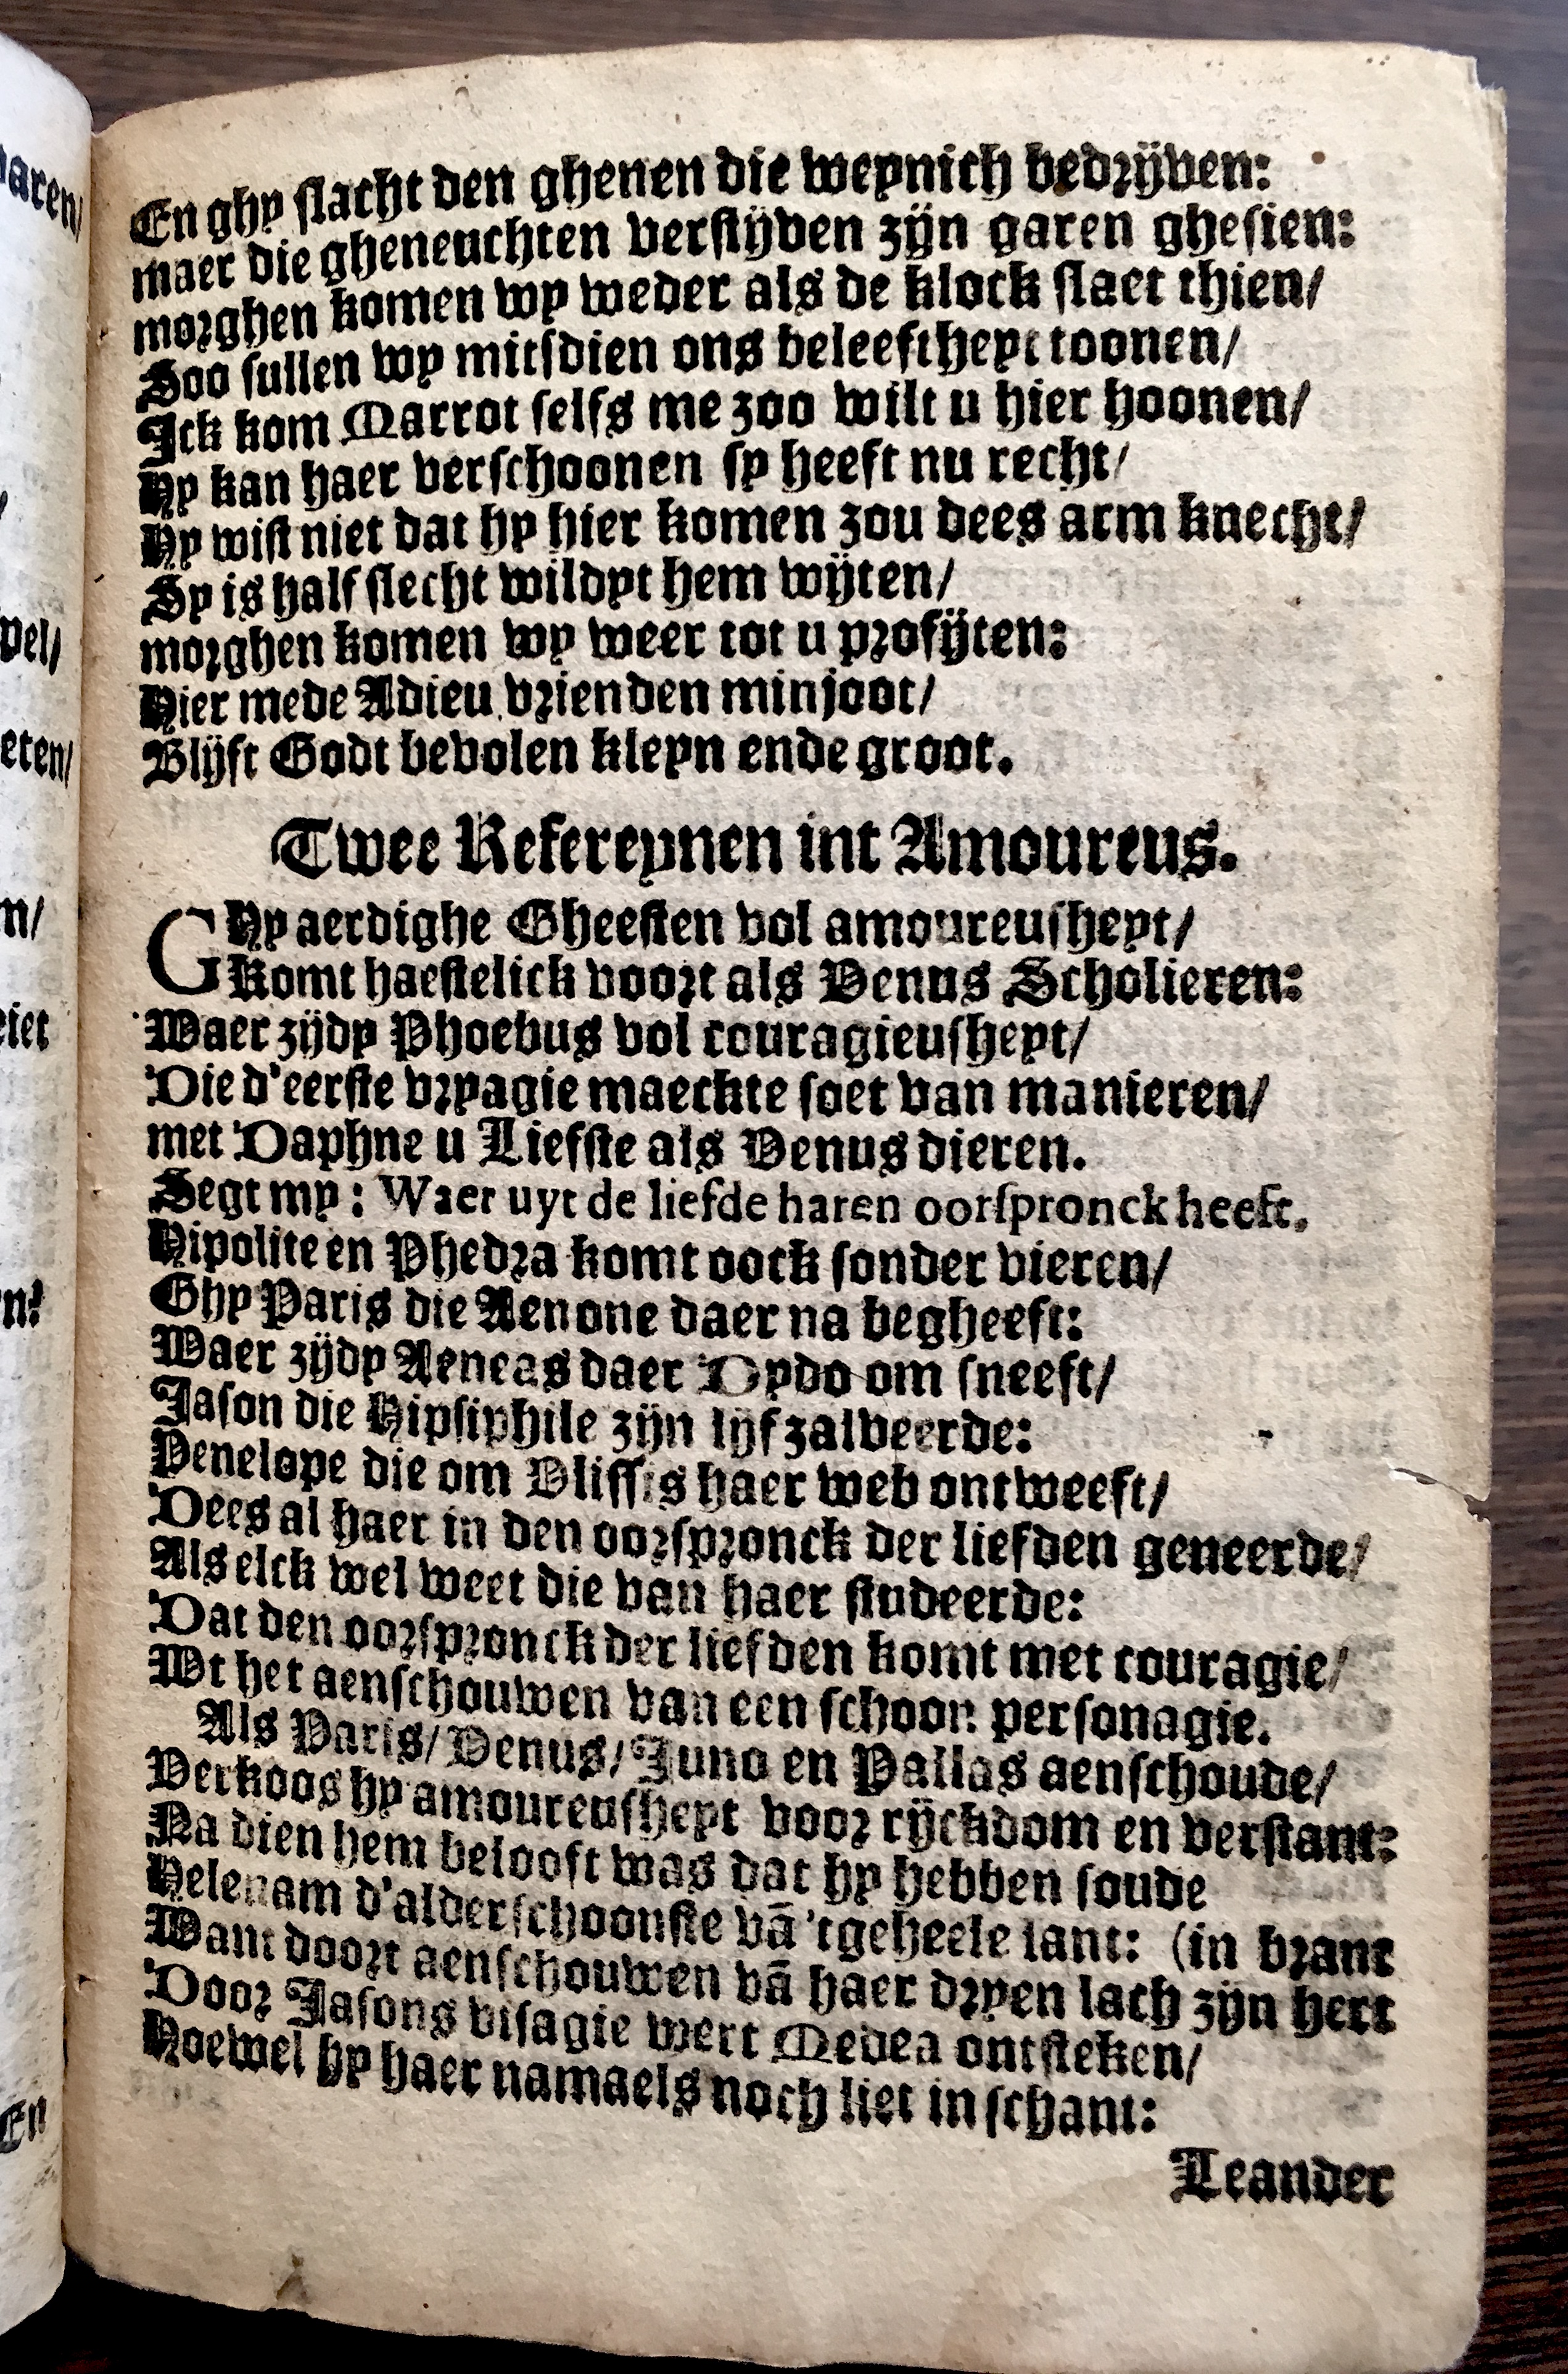 En ghy slacht den ghenen die weynich bedrijven:
maer die gheneuchten verstijven zijn garen ghesien:
morghen komen wy weder als de klock slaet thien/
Soo sullen wy mitsdien ons beleeftheyt toonen/
Ick kom Marrot selfs me zoo wilt u hier hoonen/
Hy kan haer verschoonen sy heeft nu recht/
Hy wist niet dat hy hier komen zou dees arm knecht/
Sy is half slecht wildyt hem wijten/
morghen komen wy weer tot u profijten:
Hier mede Adieu vrienden minjoot/
Blijft Godt bevolen kleyn ende groot.
Twee Refereynen int Amoureus.
GHy aerdighe Gheesten vol amoureusheyt/
Komt haestelick voort als Venus Scholieren:
Waer zijdy Phoebus vol couragieusheyt/
Die d'eerste vryagie maeckte soet van manieren/
met Daphne u Liefste als Venus dieren.
Segt my: Waer uyt de liefde haren oorspronck heeft.
Hipolite en Phedra komt oock sonder vieren/
Ghy Paris die Aenone daer na begheeft:
Waer zijdy Aeneas daer Dydo om sneeft/
Jason die Hipsiphile zijn lijf zalveerde:
Penelope die om Vlissis haer web ontweeft/
Dees al haer in den oorspronck der liefden geneerde/
Als elck wel weet die van haer studeerde:
Dat den oorspronck der liefden komt met couragie/
Wt het aenschouwen van een schoon personagie.
Als Paris/ Venus/ Juno en Pallas aenschoude/
Verkoos hy amoureusheyt voor rijckdom en verstant:
Na dien hem belooft was dat hy hebben soude
Helenam d'alderschoonste vã 'tgeheele lant: (in brant
Want doort aenschouwen vã haer dryen lach zijn hert
Door Jasons visagie wert Medea ontsteken/
Hoewel hy haer namaels noch liet in schant:
Leander
aren/
vel/
eten/
n/
iet
n:
En